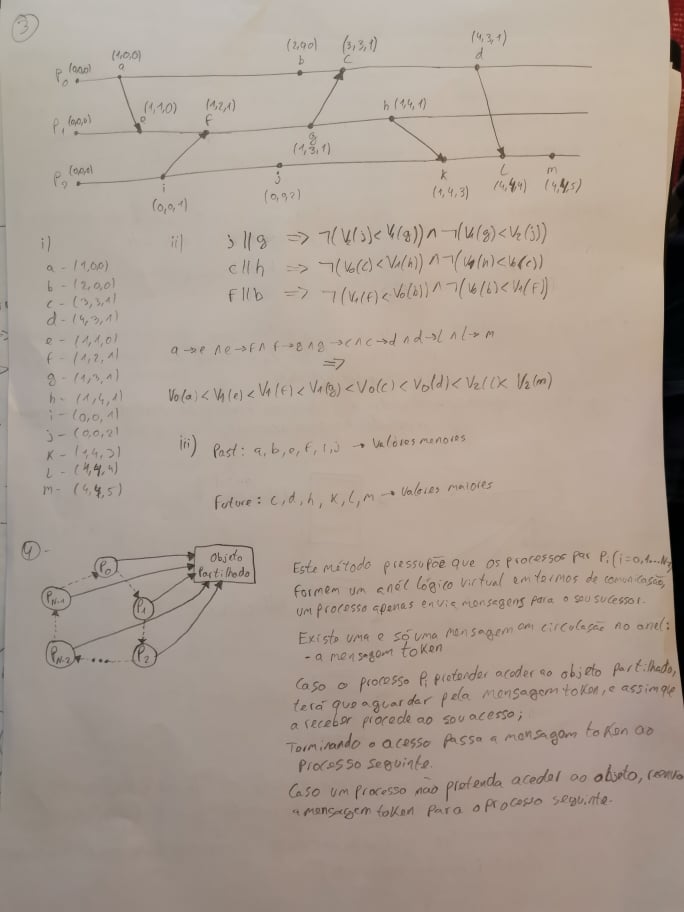 3
P0 (0,0,0) (1,0,0) a (2,0,0) b (3,3,1) c (4,3,1) d
P1 (0,0,0) e (1,1,0) (1,2,1) f g (1,3,1) h (1,4,1)
P2 (0,0,0) i (0,0,1) j (0,0,2) k (1,4,3) l (4,4,4) m (4,4,5)
i)
a - (1,0,0)
b - (2,0,0)
c - (3,3,1)
d - (4,3,1)
e - (1,1,0)
f - (1,2,1)
g - (1,3,1)
h - (1,4,1)
i - (0,0,1)
j - (0,0,2)
k - (1,4,3)
l - (4,4,4)
m - (4,4,5)
ii) j || g => ¬(V2(j) < V1(g)) ∧ ¬(V1(g) < V2(j))
c || h => ¬(V0(c) < V1(h)) ∧ ¬(V1(h) < V0(c))
f || b => ¬(V1(f) < V0(b)) ∧ ¬(V0(b) < V1(f))
a → e ∧ e → f ∧ f → g ∧ g → c ∧ c → d ∧ d → l ∧ l → m
=>
V0(a) < V1(e) < V1(f) < V1(g) < V0(c) < V0(d) < V2(l) < V2(m)
iii) Past: a, b, e, f, i, j → Valores menores
Future: c, d, h, k, l, m → Valores maiores
4-
P0
Objeto
Partilhado
PN-1
P1
PN-2
P2
Este método pressupõe que os processos par Pi (i=0,1...N-
formem um anél lógico virtual em termos de comunicação,
um processo apenas envia mensagens para o seu sucessor.
Existe uma e só uma mensagem em circulação no anel:
- a mensagem token
Caso o processo Pi pretender aceder ao objeto partilhado,
terá que aguardar pela mensagem token, e assim que
a receber procede ao seu acesso;
Terminando o acesso passa a mensagem token ao
processo seguinte.
Caso um processo não pretenda aceder ao objeto, reenvia
a mensagem token para o processo seguinte.